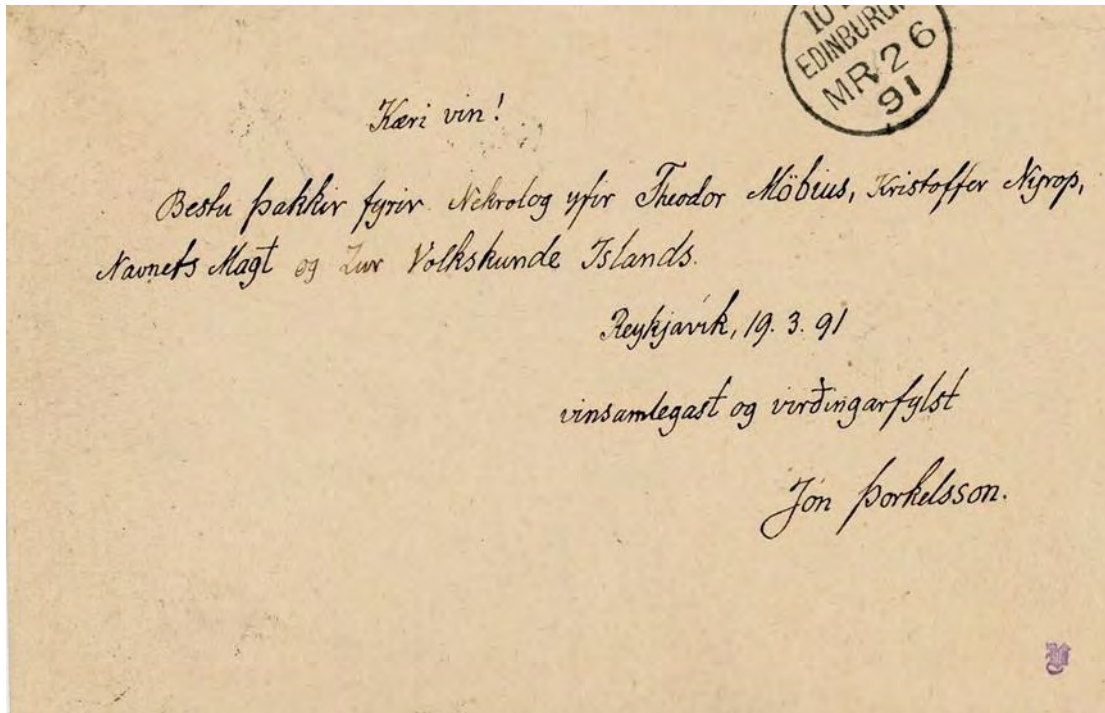 10
EDINBURGH
MR 26
91
Kæri vin!
Bestu þakkir fyrir Nekrolog yfir Theodor Möbius, Kristoffer Nyrop,
Navnets Magt og Zur Volkskunde Islands.
Reykjavík, 19. 3. 91
vinsamlegast og virðingarfylst
Jón Þorkelsson.